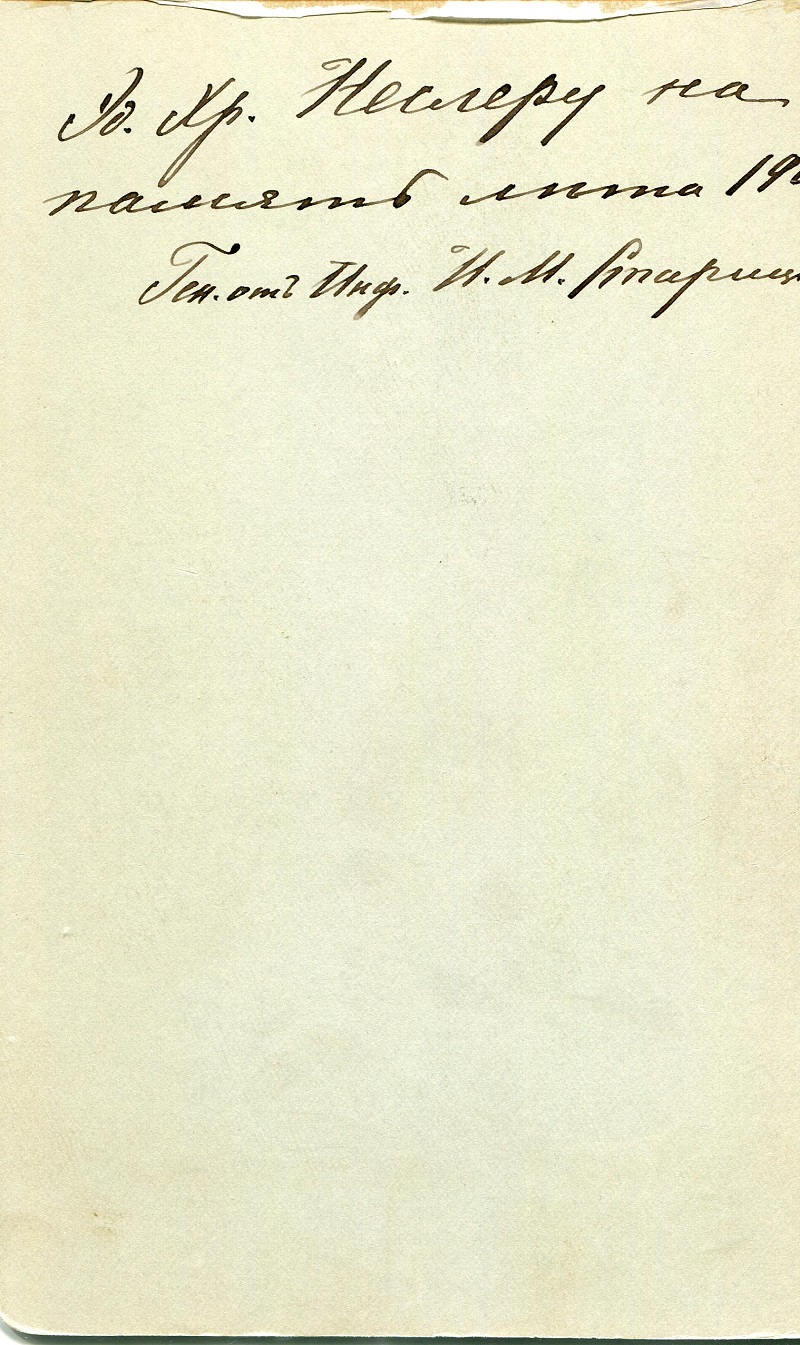 Эд. Хр. Неслеру на
память лѣта 190
Ген. отъ Инф. И. М. Стариц